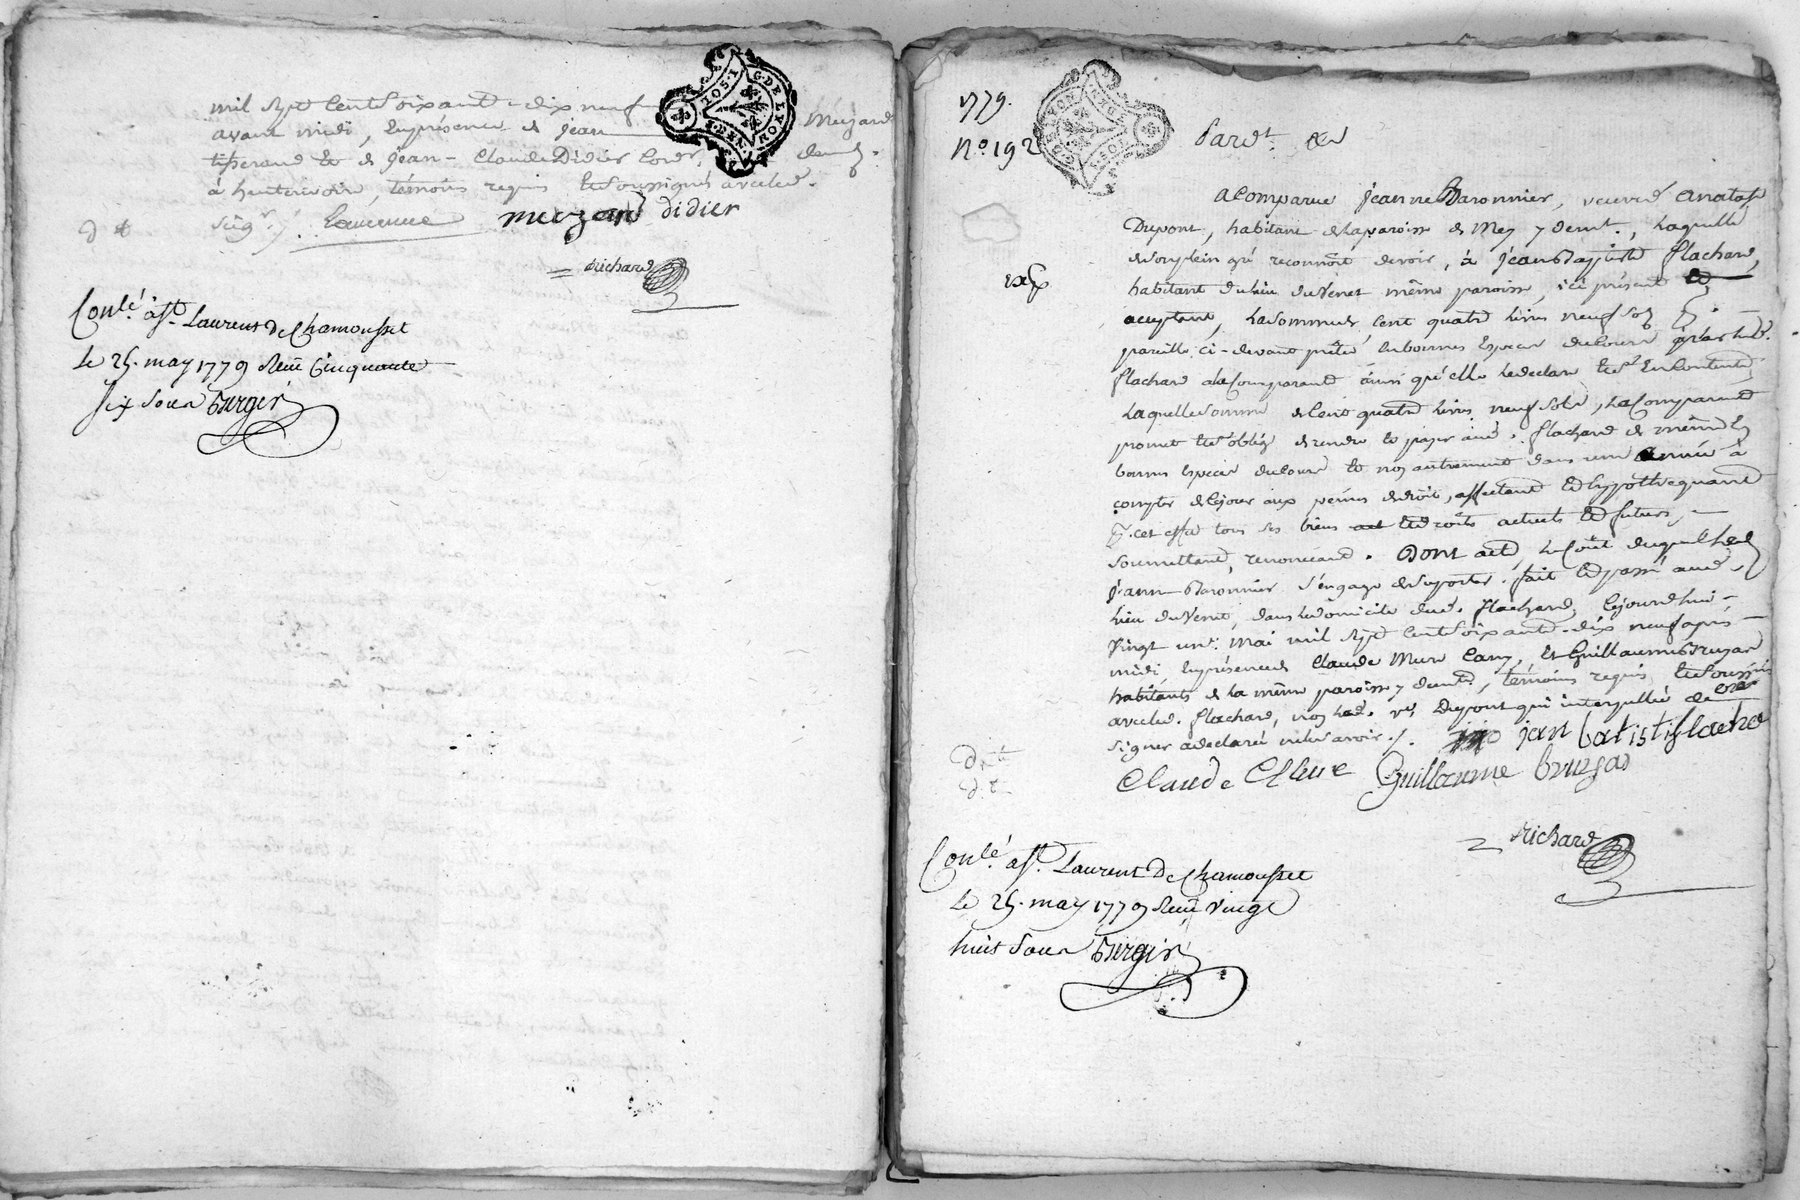 mil sept cent soixante-dix neuf
avant midi, en présence de jean Meyzard
tisserand et de jean-Claude Didier cord.r dem.t
à hauterivoire, témoins requis et soussignés avec led.
meyzard didier
Richard
Con.lé à St. Laurent De Chamousset
Le 25. may 1779 Reçu Cinquante
six Sous Bergier
G. DE LYON
1779.
N.o 192
Pard.t
a Comparue Jeanne Baronnier, veuve d'Anatoise
Dupont, habitant de la paroisse de Meys y dem.t, Laquelle
de son plein gré reconnoit devoir, à Jean Baptiste flachard,
habitant du lieu du Venet même paroisse, ici présent et
acceptant, La somme de cent quatre livres neuf sols
pareille ci-devant prêtée en bonnes Especes de Cours par led.
flachard à la Comparante ainsi qu'elle le declare et s'en Contente,
Laquelle somme de Cent quatre Livres neuf sols, La Comparante
promet et s'oblige de rendre et payer aud. flachard de même en
bonnes Especes de Cours et non autrement dans une année à
compter de ce jour aux peines de droit, affectant et hypothequant
p. cet effet tous ses biens et droits actuels et futurs,
soumettant, renonceant. Dont acte, le Coût duquel lad.
Jeanne Baronnier s'engage de suporter. fait et passé aud.
lieu du Venet, dans le domicile dud. flachard, Cejourdhui
Vingt un. Mai mil sept Cent Soixante-dix neuf après
midi, En présence de Claude Mure et Guillaume Bruyas
habitants de la même paroisse y dem.t, témoins requis et soussignés
avec led. flachard, non lad. v.e Dupont qui interpellée de
signer a declaré ne le savoir ./.
jean batistiflachar
Claude Guillaume bruyas
Richard
Con.lé à St. Laurent De Chamousset
Le 25. may 1779 Reçu Vingt
huit Sous Bergier